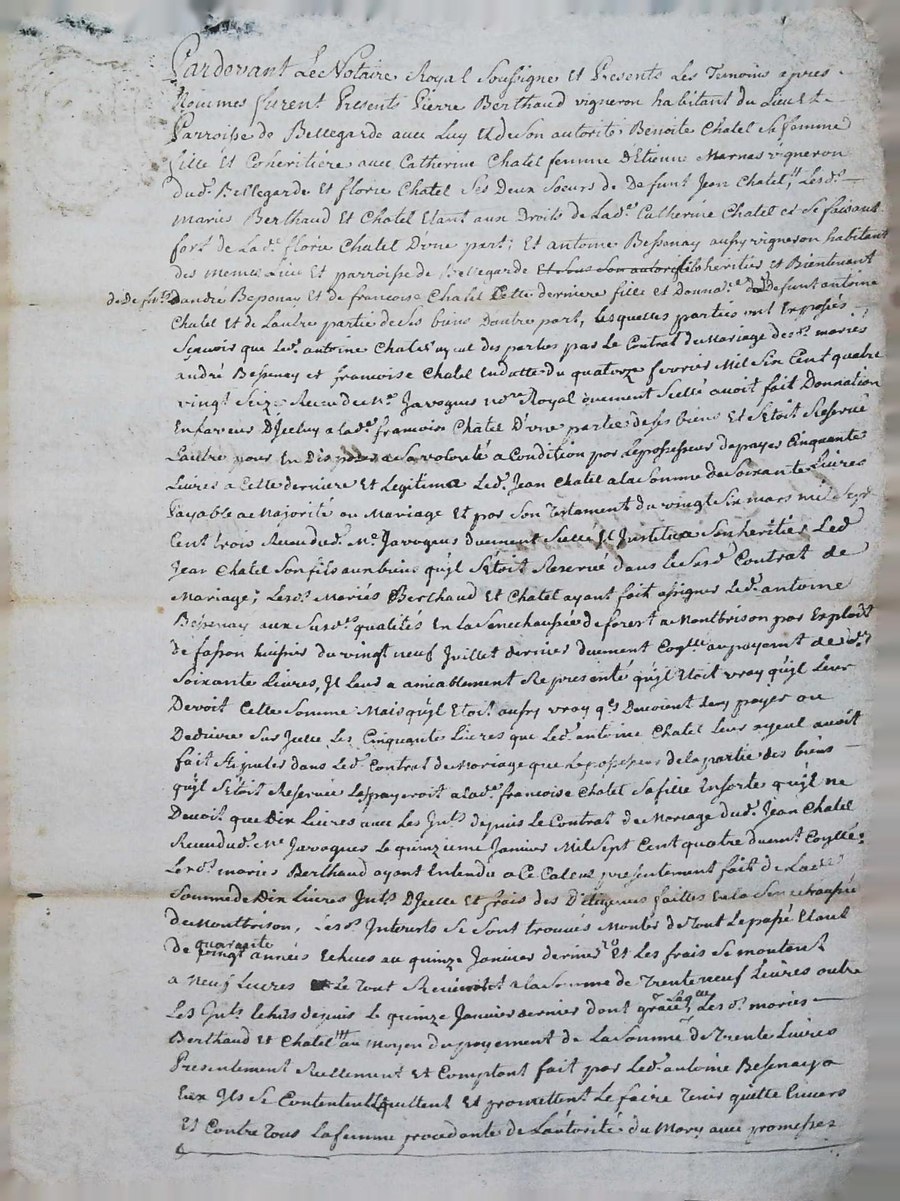 Pardevant Le Notaire Royal Soussigné Et Presents Les Temoins apres
Nommes furent Presents Pierre Berthaud vigneron habitant du Lieu Et
Parroisse de Bellegarde avec Luy Et de Son autorité Benoite Chatel Sa femme
fille Et Coheritiere avec Catherine Chatel femme D'Etienne Marnas vigneron
dud. Bellegarde Et florie Chatel Ses Deux Soeurs de Defunt Jean Chatel, Lesd.
mariés Berthaud Et Chatel Etant aux Droits de Lad.e Catherine Chatel et Se faisant
fort de Lad.e florie Chatel D'une part; Et antoine Bessenay aussy vigneron habitant
des memes Lieu Et parroisse de Bellegarde Et Sous Son autorité heritier Et Bientenant
de Defunts andré Bessenay Et de francoise Chatel Cette derniere fille Et Donna.re de defunt antoine
Chatel Et de Lautre partie de Ses biens Dautre part, Lesquelles parties ont Exposés
Scavoir que Led. antoine Chatel ayeul des parties par Le Contrat de Mariage desd. mariés
andré Bessenay et francoise Chatel En datte du quatorze fevrier Mil Six Cent quatre
vingt Seize Receu de Me Javogues no.re Royal duement Scellé avoit fait Donnation
En faveur D'Jcelluy a lad.e francoise Chatel D'une partie de Ses biens Et S'Etoit Reservé
Lautre pour En Disposer a Sa volonté a Condition par Le possesseur de payer Cinquante
Livres a Cette derniere Et Legitima Led. Jean Chatel a la Somme de Soixante Livres
Payable a Majorité ou Mariage Et par Son Testament du vingt Six mars mil Sept
Cent trois Receu dud. Me Javogues duement Scellé Jl Jnstitua Son heritier Led.
Jean Chatel Son fils aux biens qu'jl S'Etoit Reservé dans Le Susd. Contrat de
Mariage; Lesd. Mariés Berthaud Et Chatel ayant fait assigner Led. antoine
Bessenay aux Susd.es qualités En La Senechaussée de forest a Montbrison par Exploit
de huissier du vingt neuf Juillet dernier duement Co.lle au payement desd.
Soixante Livres, Jl Leur a amiablement Representé qu'jl Etoit vray qu'jl Leur
Devoit Cette Somme Mais qu'jl Etoit aussy vray q.ls Devoient Luy payer ou
Deduire Sur Jcelle Les Cinquante Livres que Led. antoine Chatel Leur ayeul avoit
fait Stipuler dans Led. Contrat de Mariage que Le possesseur de la partie des biens
qu'jl S'Etoit Reservée Les payeroit a Lad.e francoise Chatel Sa fille Ensorte qu'jl ne
Devoit que Dix Livres avec Les Jnts depuis Le Contrat de Mariage dud. Jean Chatel
Receu dud. Me Javogues Le quinzieme Janvier Mil Sept Cent quatre duemt Co.llé
Lesd. mariés Berthaud ayant Entendu a Ce Calcul presentement fait de Lad.e
Somme de Dix Livres Jnts D'Jcelle Et frais des Diligences faittes En la Senechaussée
de Montbrison, Lesd. Interests Se Sont trouvés Monter de Tout Le passé Et avec
quarante
De vingt années Echues au quinze Janvier dernier Et Les frais Se montent
a Neuf Livres Le Tout Revenant a la Somme de Trente neuf Livres outre
Les Jnts Echus depuis Le quinze Janvier dernier dont grace, Lesd. mariés
Berthaud Et Chatel au Moyen du payement de La Somme de Trente Livres
Presentement Reellement Et Comptant fait par Led. antoine Bessenay a
Eux Jls Se Contentent quittent Et promettent Le faire Tenir quitte Envers
Et Contre Tous La femme procedante de L'autorité du Mary avec promesses